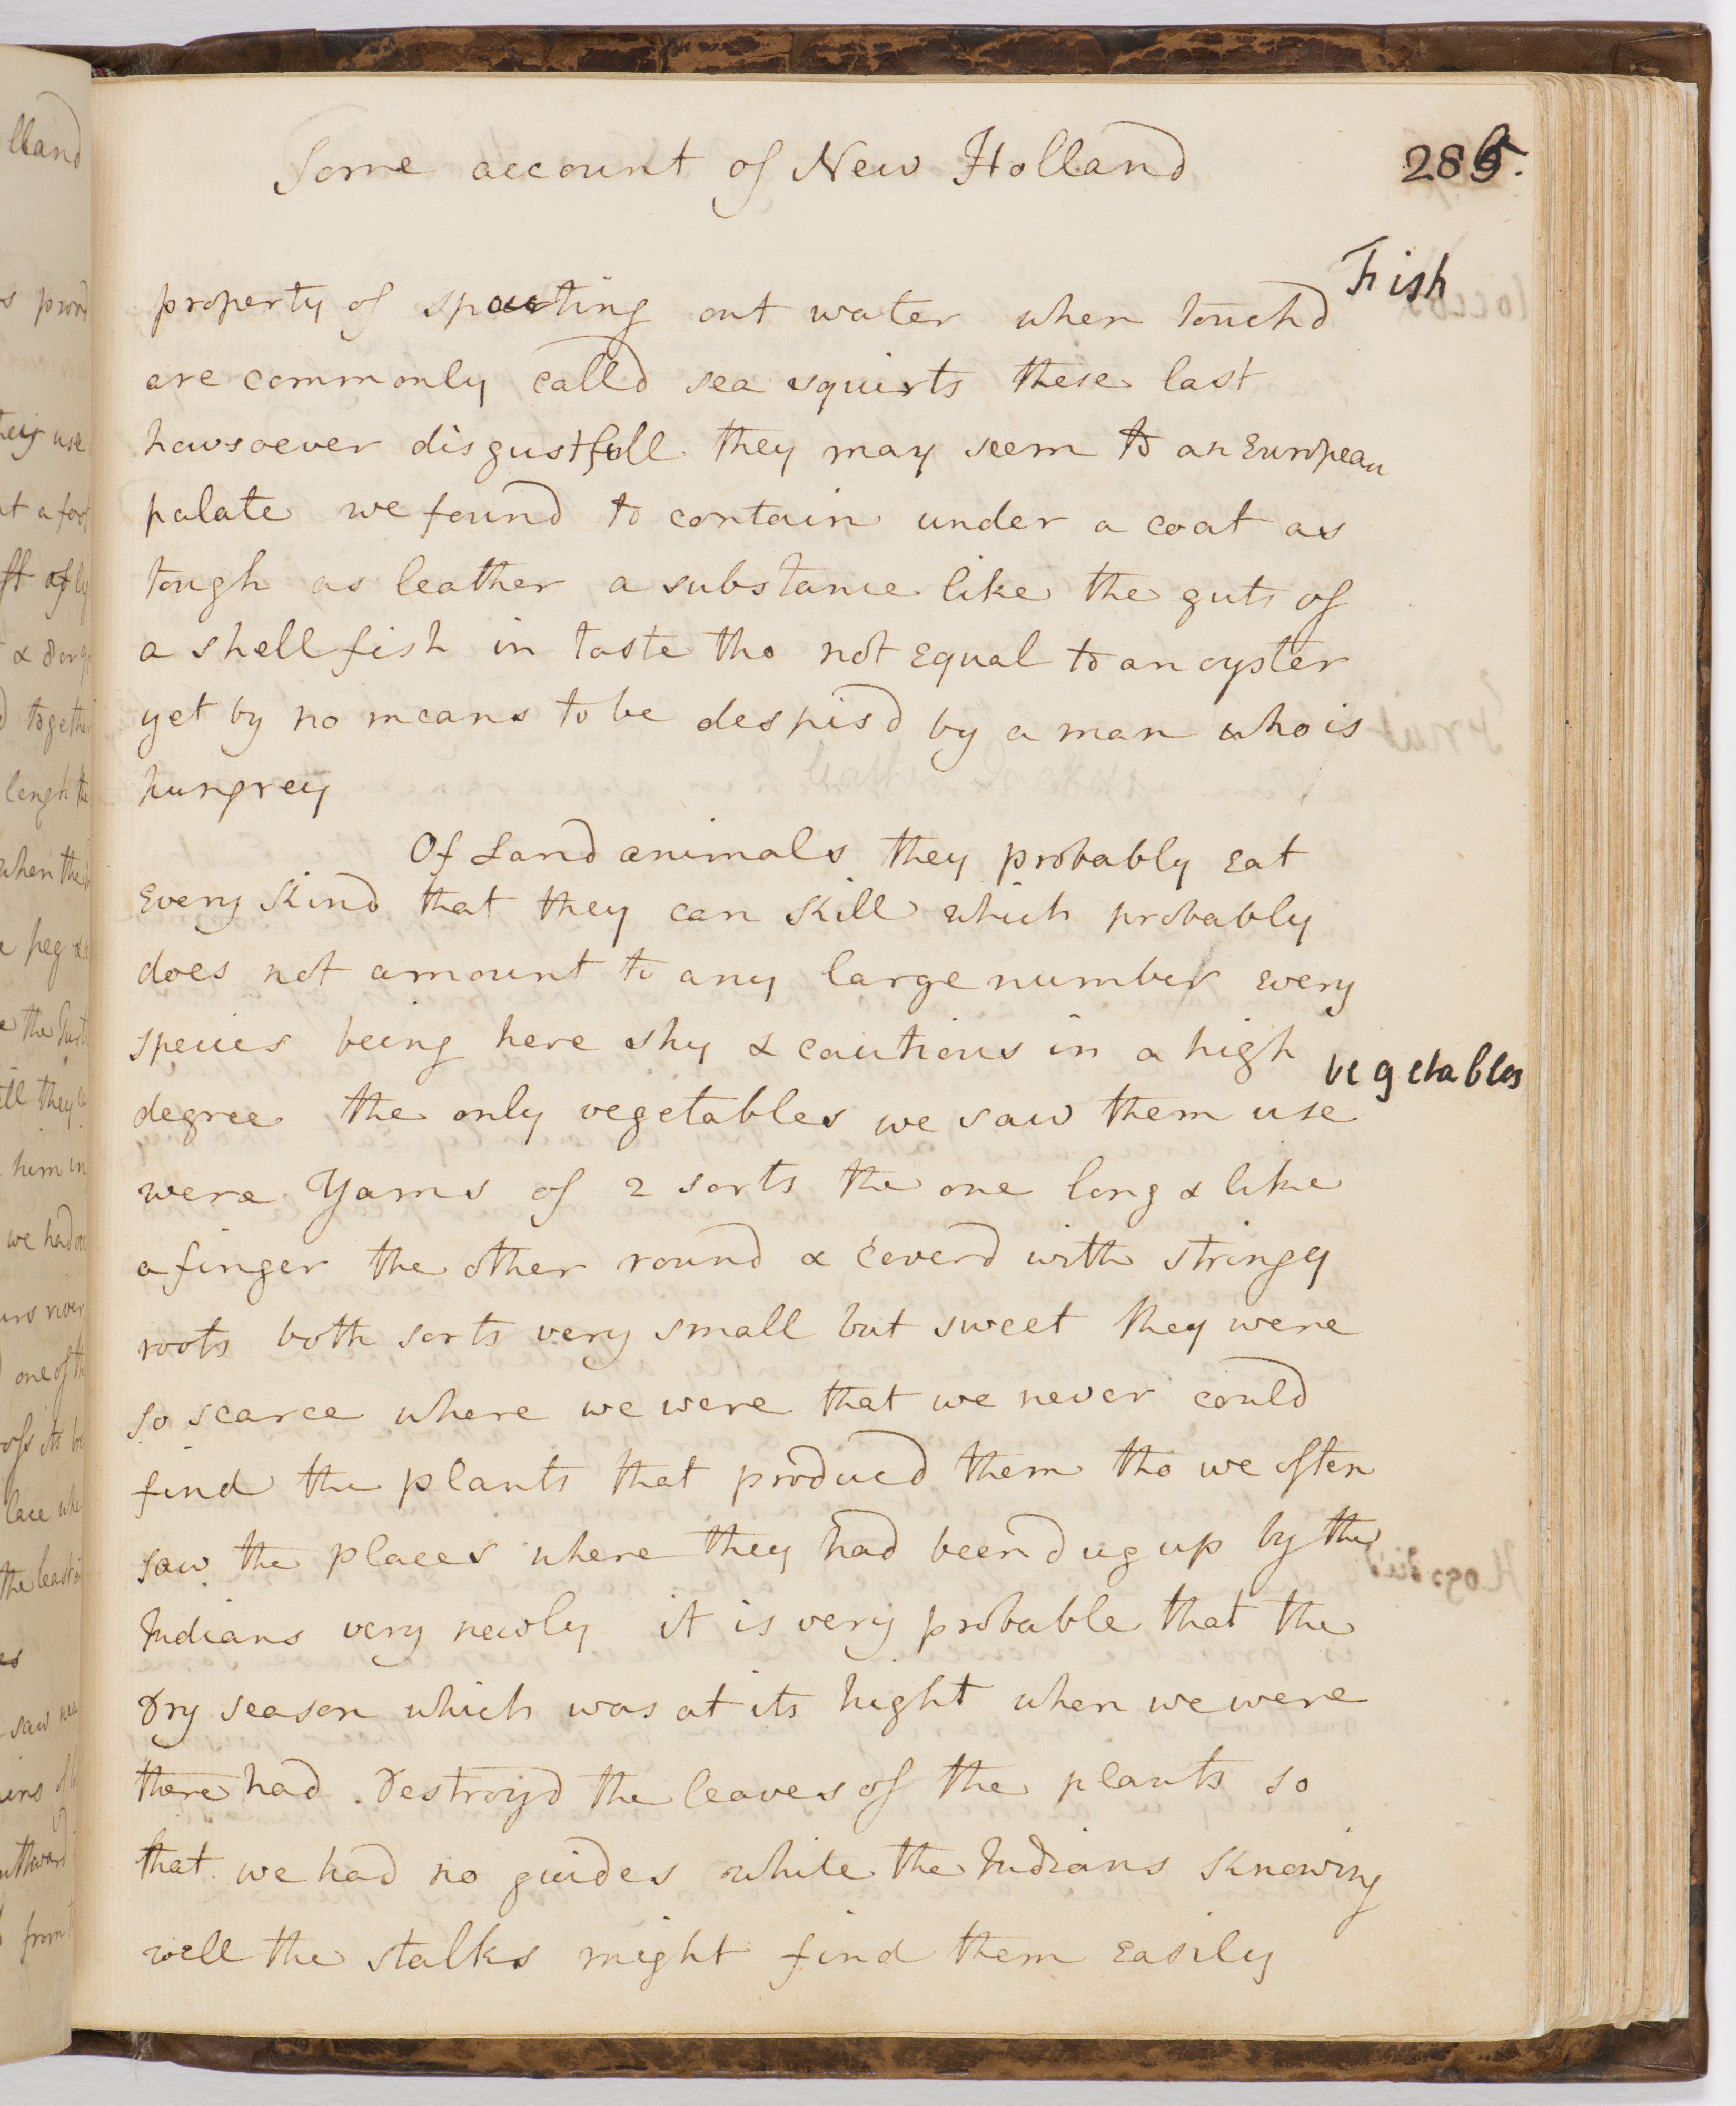 Some account of New Holland
285.
Fish
property of spouting out water when touchd
are commonly calld sea squirts these last
howsoever disgustfull they may seem to an European
palate we found to contain under a coat as
tough as leather a substance like the guts of
a shellfish in taste tho not equal to an oyster
yet by no means to be despisd by a man who is
hungrey
Of Land animals they probably eat
every kind that they can kill which probably
does not amount to any large number every
species being here shy & cautious in a high
vegetables
degree the only vegetables we saw them use
were Yams of 2 sorts the one long & like
a finger the other round & coverd with stringy
roots both sorts very small but sweet they were
so scarce where we were that we never could
find the plants that producd them tho we often
saw the places where they had been dug up by the
Indians very newly it is very probable that the
Dry season which was at its hight when we were
there had destroyd the leaves of the plants so
that we had no guides while the Indians knowing
well the stalks might find them easily